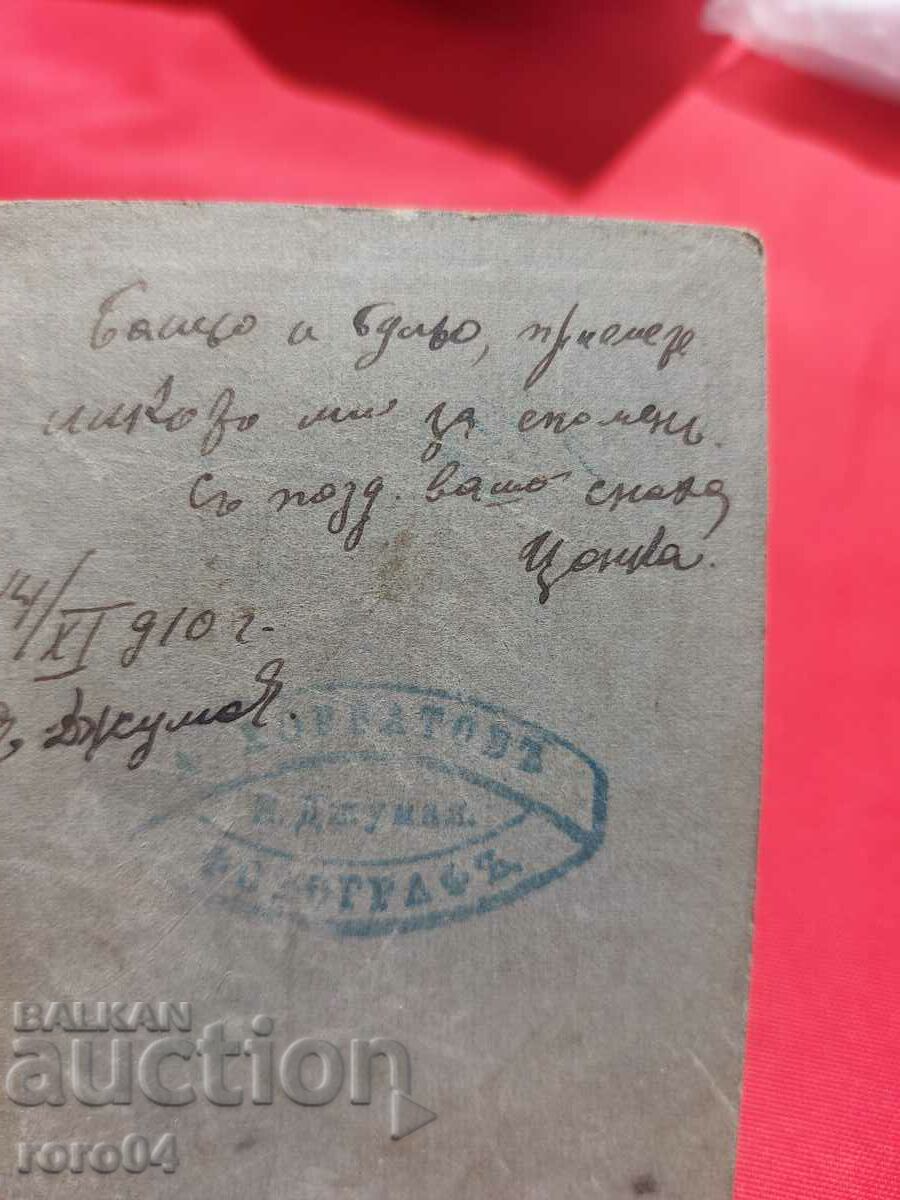 и приемете
ликово ми за споменъ.
Съ позд. ваша снаха
Цонка.
XI 910 г.
Джумая.
ХОРРАТОВЪ
Н. Джумая.
ФОТОГРАФЪ
BALKAN
auction
roro04